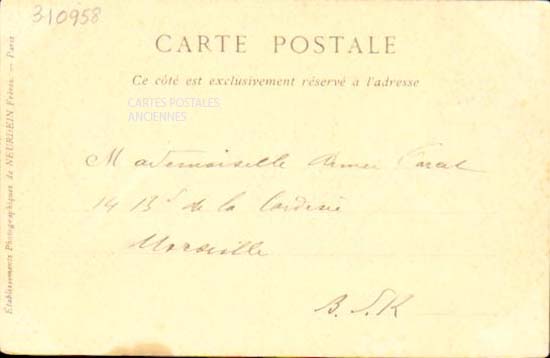 310958
CARTE POSTALE
Ce côté est exclusivement réservé à l'adresse
CARTES POSTALES
ANCIENNES
Mademoiselle
14 Bd de la Corderie
Marseille
B. d. R
Établissements Photographiques de NEURDEIN Frères. — Paris